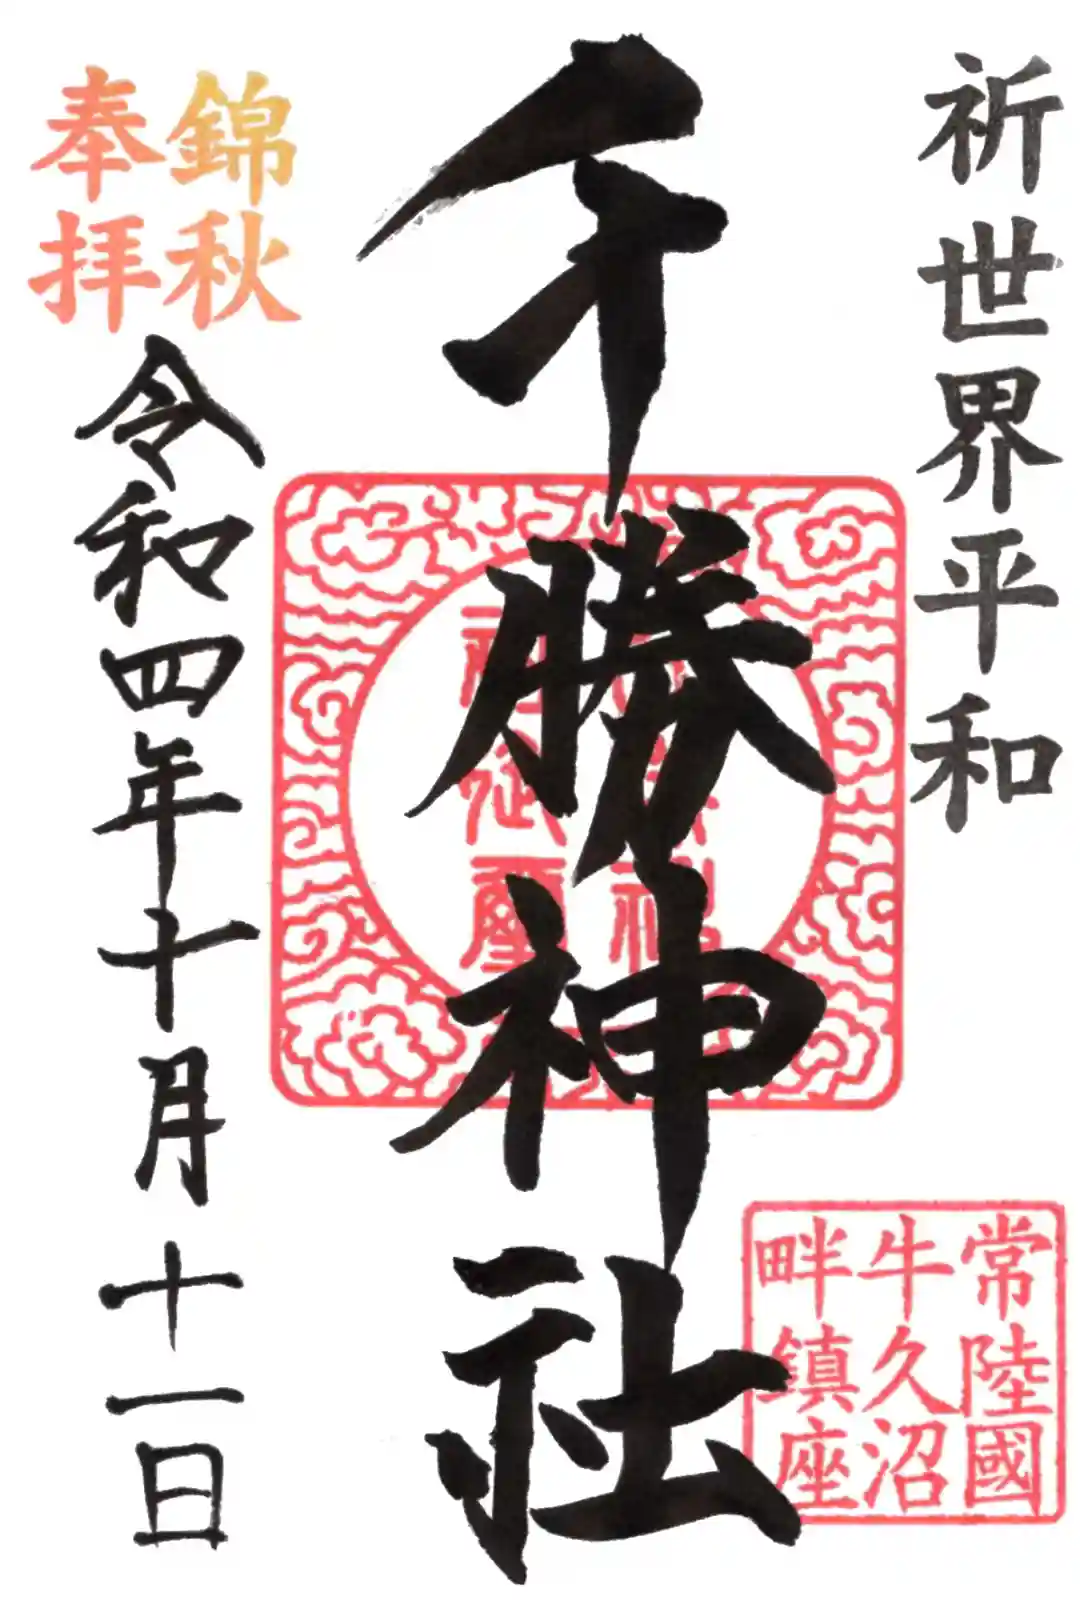 祈世界平和
千勝神社
錦秋
奉拝
令和四年十月十一日
常陸國
牛久沼
畔鎮座